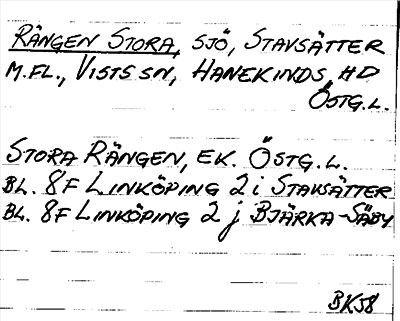 RÄNGEN STORA, SJÖ, STAVSÄTTER
M.FL., VISTS SN, HANEKINDS HD
ÖSTG.L.
STORA RÄNGEN, EK. ÖSTG.L.
BL. 8F LINKÖPING 2 i STAVSÄTTER
BL. 8F LINKÖPING 2 j BJÄRKA-SÄBY
BK58